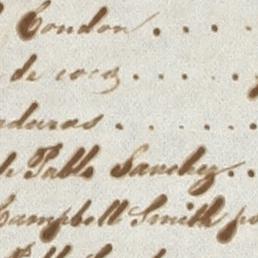 London . . . .
de coco . . . . .
aduras . . . . .
de Pablo Sanchez . .
Campbell Smith po